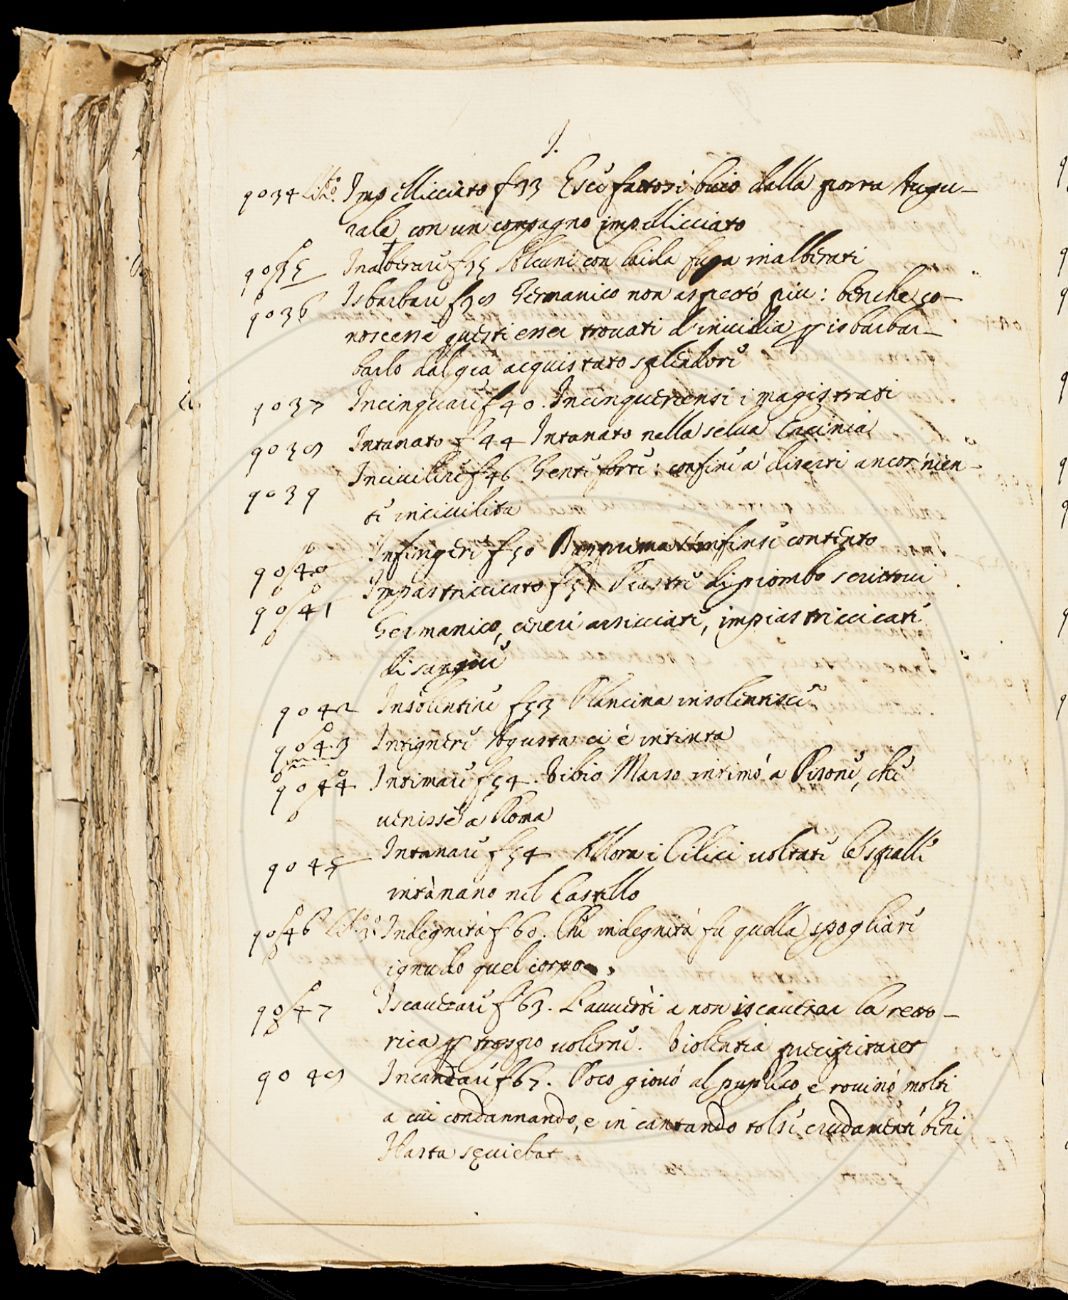 I.
9034 Lib.o Impelliciato f 33 Esce fattosi buio dalla porta Augu-
rale con un compagno impelliciato
9035 Inalberare f 35 Alcuni con facila fuga inalberati
9036 Isbarbare f 38 Germanico non aspettò piu: benche co-
noscesse questi essere trovati d'invidia p isbarbar-
barlo dal gia acquistato splendore
9037 Incinquare f 40. Incinquerensi i magistrati
9038 Intanato f 44 Intanato nella selva Lacinia
9039 Incivilire f 46 Genti forti: confini a' diserti ancor nien-
te incivilita
9040 Infingere f 50 infinse contento
9041 Impastriccicato f 51 Piastre di piombo scrittovi
Germanico, ceneri arsicciate, impiastriccicate
di sangue
9042 Insolentire f 53 Plancina insolentisce
9043 Intignere Agusta ci è intinta
9044 Intimare f 54. Vibio Marso intimò a Pisone, che
venisse a Roma
9045 Intanare f 54 Allora i Cilici voltate le spalle
intànano nel Castello
9046 Lib.o 3.o Indegnità f 60. Che indegnità fu quella spogliare
ignudo quel corpo.
9047 Iscavezare f 63. L'avvertì a non iscavezar la reto-
rica p troppo volerne. Violentia precipitaret
9048 Incantare f 67. Poco giovò al publico, e rovinò molti
a cui condannando, e in cantando tolse crudamente beni
Hasta sequiebat